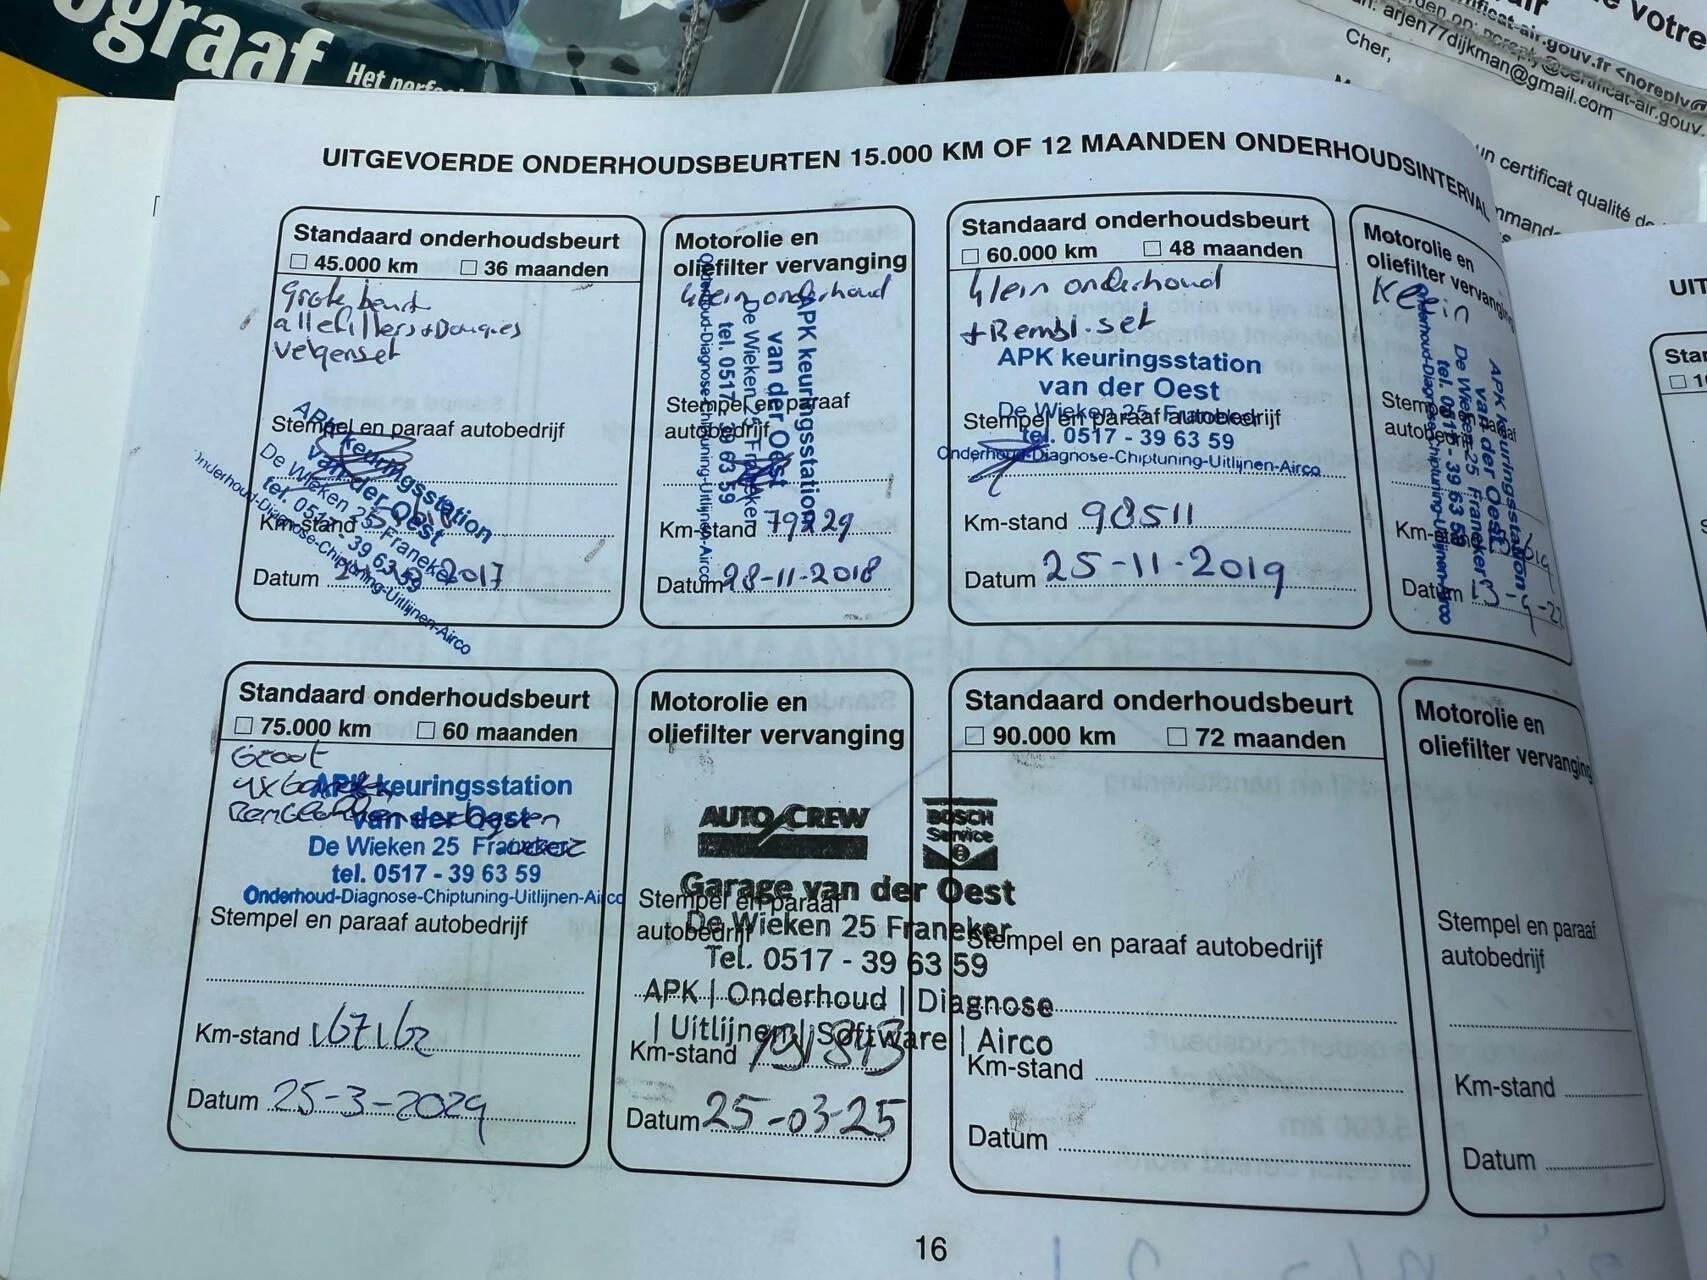 ograaf
Het perfe
ir
e votre
rtificat-air.gouv.fr <noreply@
arjen77dijkman@gmail.com
Cher,
un certificat qualité de
mmand
UITGEVOERDE ONDERHOUDSBEURTEN 15.000 KM OF 12 MAANDEN ONDERHOUDSINTERVAL
Standaard onderhoudsbeurt
45.000 km 36 maanden
Grote beurt
alle filters + Bougies
velgenset
APK keuringsstation
van der Oest
De Wieken 25 Franeker
tel. 0517 - 39 63 59
Onderhoud-Diagnose-Chiptuning-Uitlijnen-Airco
Stempel en paraaf autobedrijf
Km-stand
Datum 2017
Motorolie en
oliefilter vervanging
Klein onderhoud
APK keuringsstation
van der Oest
De Wieken 25 Franeker
tel. 0517 - 39 63 59
Onderhoud-Diagnose-Chiptuning-Uitlijnen-Airco
Stempel en paraaf
autobedrijf
Km-stand 79229
Datum 28-11-2018
Standaard onderhoudsbeurt
60.000 km 48 maanden
Klein onderhoud
+ Rembl. set
APK keuringsstation
van der Oest
De Wieken 25 Franeker
tel. 0517 - 39 63 59
Onderhoud-Diagnose-Chiptuning-Uitlijnen-Airco
Stempel en paraaf autobedrijf
Km-stand 98511
Datum 25-11-2019
Motorolie en
oliefilter vervanging
Klein
APK keuringsstation
van der Oest
De Wieken 25 Franeker
tel. 0517 - 39 63 59
Onderhoud-Diagnose-Chiptuning-Uitlijnen-Airco
Stempel en paraaf
autobedrijf
Km-stand
Datum 13-9-22
Standaard onderhoudsbeurt
75.000 km 60 maanden
Groot
APK keuringsstation
van der Oest
De Wieken 25 Franeker
tel. 0517 - 39 63 59
Onderhoud-Diagnose-Chiptuning-Uitlijnen-Airco
Stempel en paraaf autobedrijf
Km-stand 167162
Datum 25-3-2024
Motorolie en
oliefilter vervanging
AUTO CREW
BOSCH
Service
Garage van der Oest
De Wieken 25 Franeker
Tel. 0517 - 39 63 59
APK | Onderhoud | Diagnose
| Uitlijnen | Software | Airco
Stempel en paraaf
autobedrijf
Km-stand
Datum 25-03-25
Standaard onderhoudsbeurt
90.000 km 72 maanden
Stempel en paraaf autobedrijf
Km-stand
Datum
Motorolie en
oliefilter vervanging
Stempel en paraaf
autobedrijf
Km-stand
Datum
16
UIT
Star